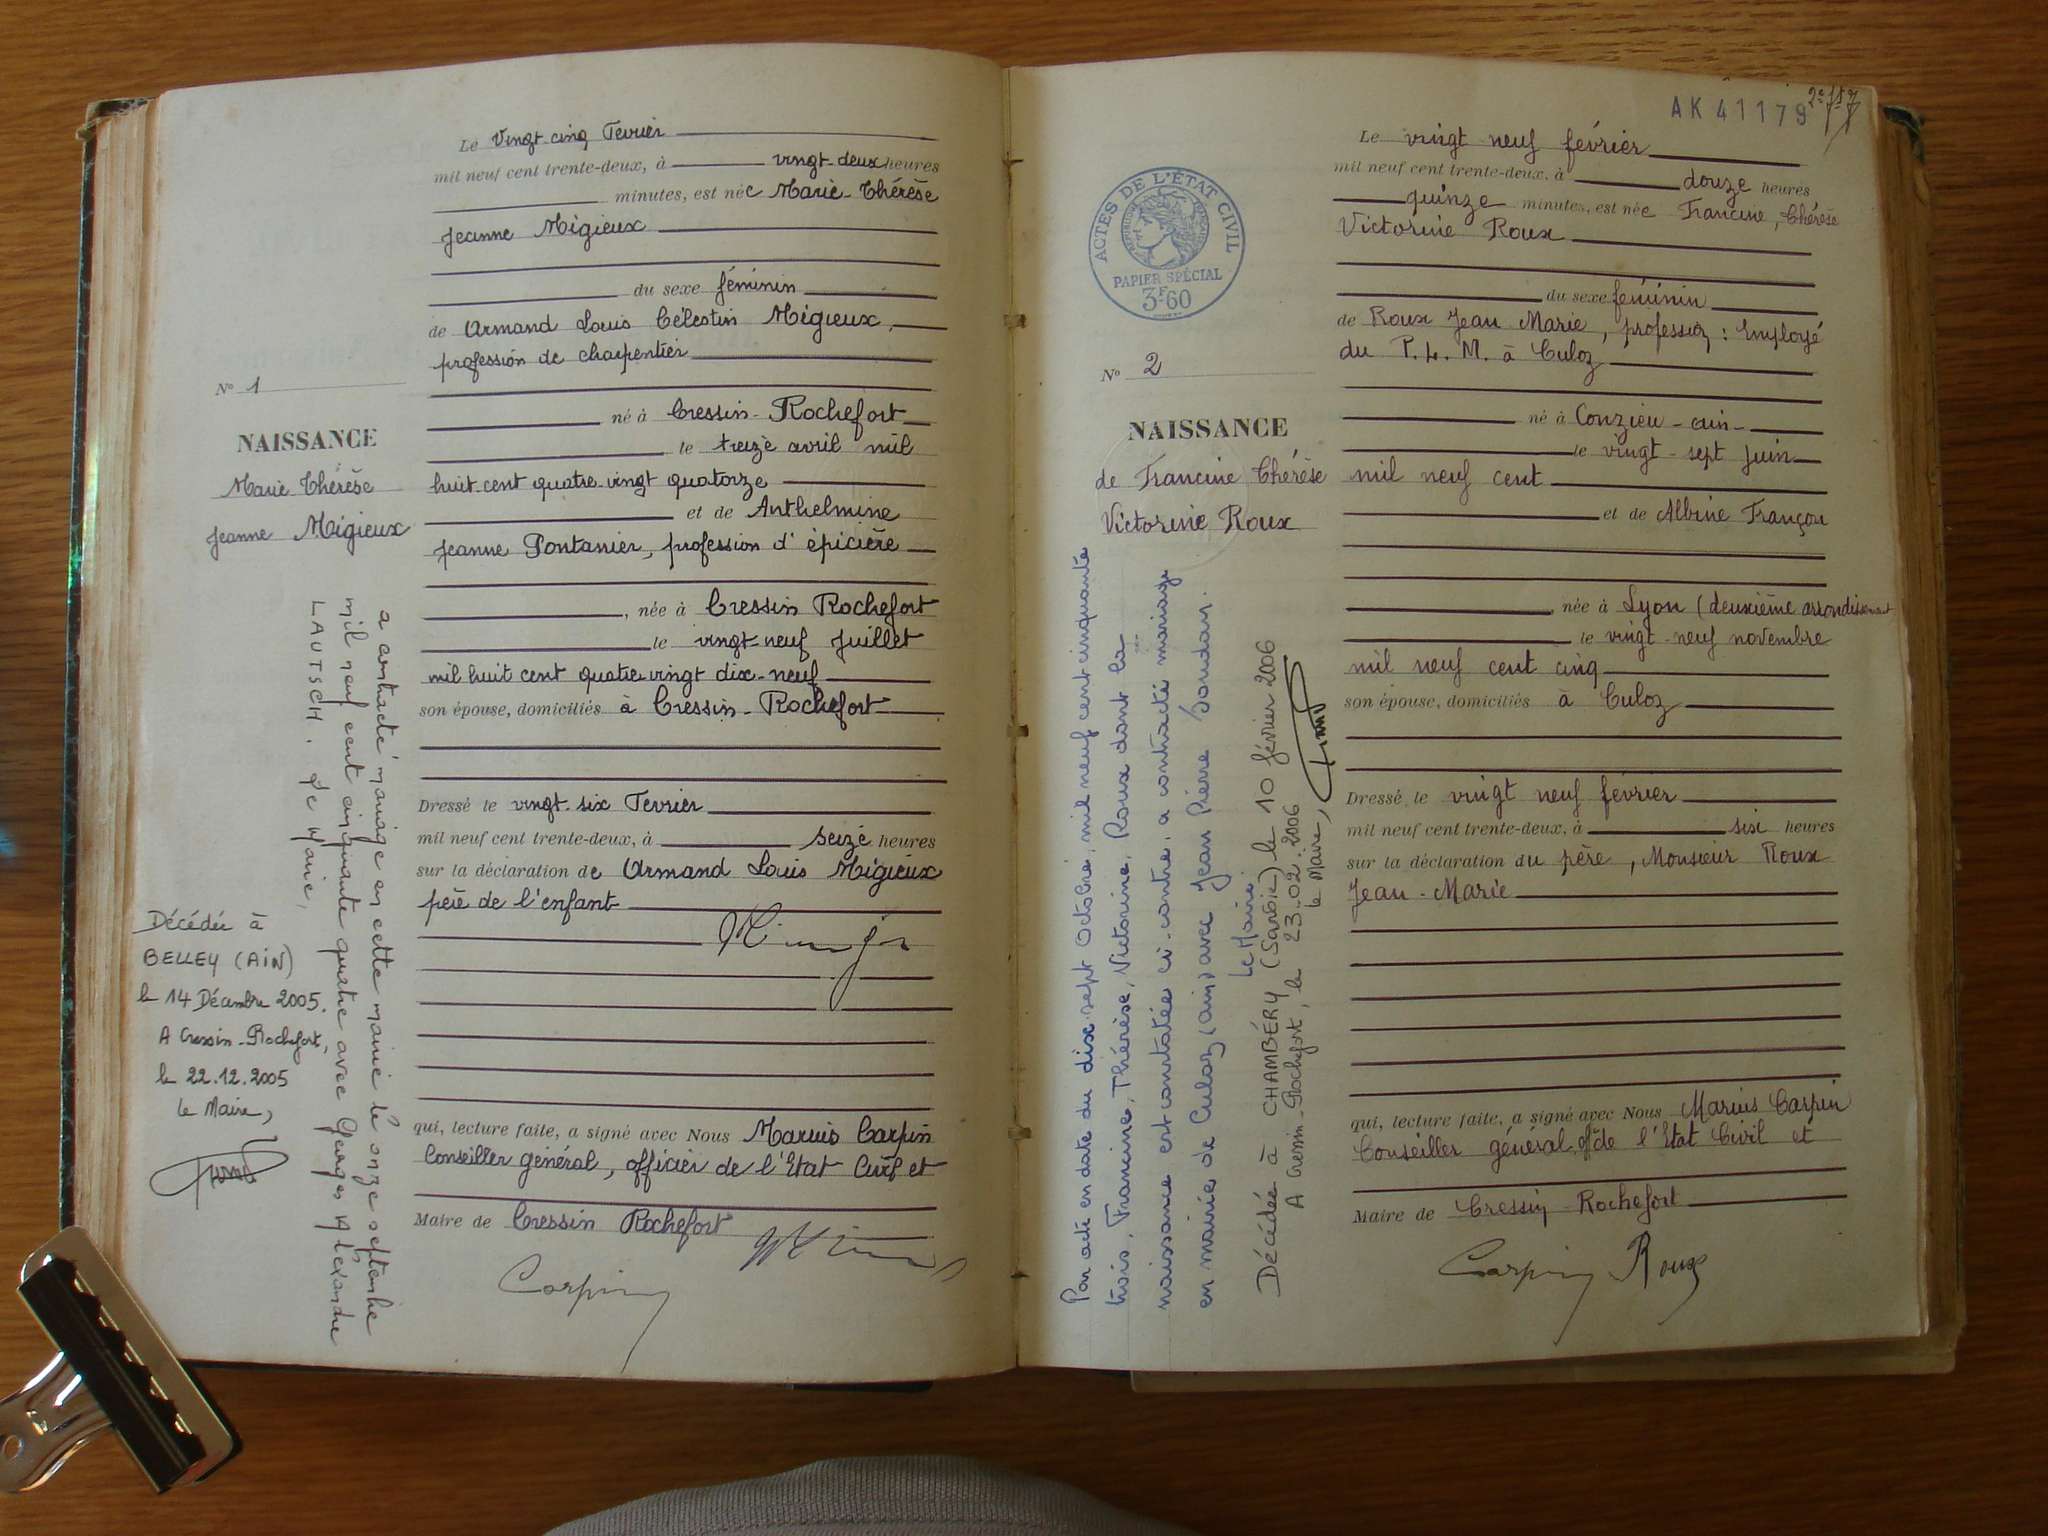 Le vingt-cinq Fevrier
mil neuf cent trente-deux, à vingt-deux heures
minutes, est née Marie-Thérèse
Jeanne Migieux
du sexe féminin
de Armand Louis Célestin Migieux,
profession de charpentier
né à Cressin-Rochefort
le treize avril mil
huit cent quatre vingt quatorze
et de Anthelmine
Jeanne Pontanier, profession d'épicière
, née à Cressin Rochefort
le vingt-neuf Juillet
mil huit cent quatre vingt dix-neuf
son épouse, domiciliés à Cressin-Rochefort
Dressé le vingt-six Fevrier
mil neuf cent trente-deux, à seize heures
sur la déclaration de Armand Louis Migieux
père de l'enfant
qui, lecture faite, a signé avec Nous Marius Carpin
Conseiller général, officier de l'Etat Civil et
Maire de Cressin Rochefort
Carpin
N° 1
NAISSANCE
Marie Thérèse
Jeanne Migieux
a contracté mariage en cette mairie le onze septembre
mil neuf cent cinquante quatre avec Georges Alexandre
LAUTSCH. Le Maire,
Décédée à
BELLEY (AIN)
le 14 Décembre 2005.
A Cressin-Rochefort,
le 22.12.2005
le Maire,
AK 41179
ACTES DE L'ÉTAT CIVIL
PAPIER SPÉCIAL
3F60
N° 2
NAISSANCE
de Francine Thérèse
Victorine Roux
Par acte en date du dix-sept Octobre, mil neuf cent cinquante
trois, Francine, Thérèse, Victorine, Roux dont la
naissance est constatée ci-contre, a contracté mariage
en mairie de Culoz (ain) avec Jean Pierre Soudan.
Le Maire
Décédée à CHAMBÉRY (Savoie) le 10 février 2006
A Cressin-Rochefort, le 23.02.2006
le Maire,
Le vingt neuf février
mil neuf cent trente-deux, à douze heures
quinze minutes, est née Francine, Thérèse
Victorine Roux
du sexe féminin
de Roux Jean Marie, profession : Employé
du P.L.M. à Culoz
né à Conzieu-ain-
le vingt-sept Juin
mil neuf cent
et de Albine Françon
, née à Lyon (deuxième arrondissement
le vingt-neuf novembre
mil neuf cent cinq
son épouse, domiciliés à Culoz
Dressé le vingt neuf février
mil neuf cent trente-deux, à six heures
sur la déclaration du père, Monsieur Roux
Jean-Marie
qui, lecture faite, a signé avec Nous Marius Carpin
Conseiller général, off. de l'Etat Civil et
Maire de Cressin-Rochefort
Carpin Roux